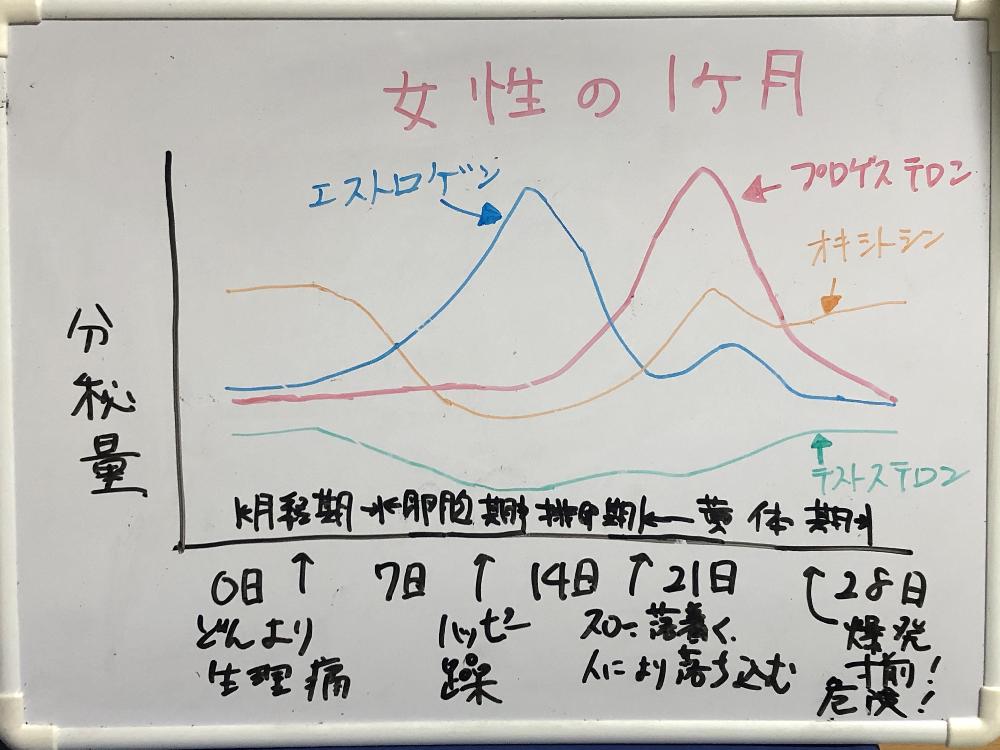 女性の1ケ月
エストロゲン
プロゲステロン
オキシトシン
分泌量
テストステロン
月経期
卵胞期
排卵期
黄体期
0日
7日
14日
21日
28日
どんより
生理痛
ハッピー
躁
スロー 落着く.
人により落ち込む
爆発
寸前!
危険!